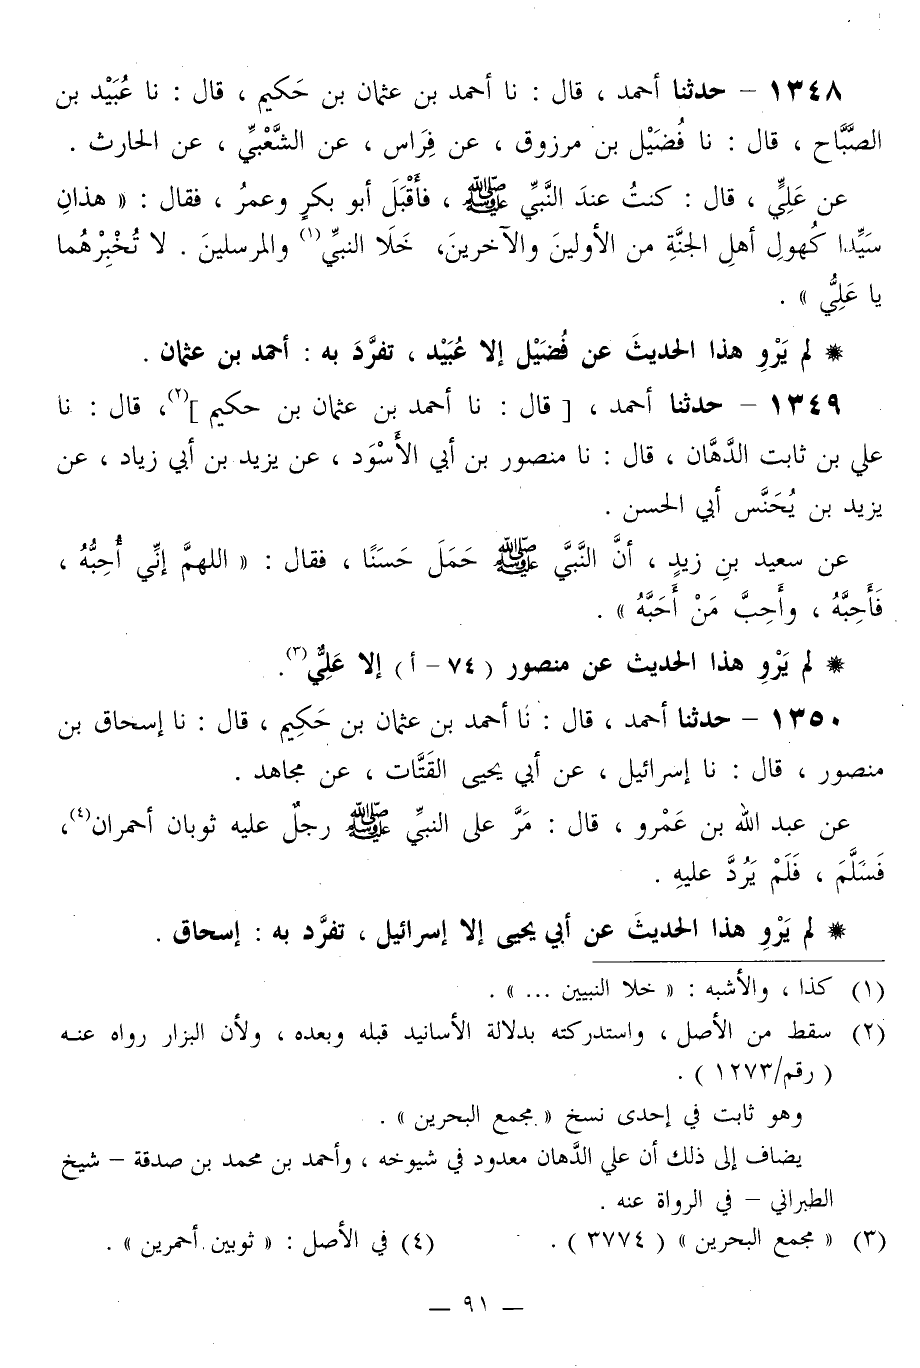 ١٣٤٨ – حدثنا أحمد ، قال : نا أحمد بن عثمان بن حَكيم ، قال : نا عُبَيْد بن
الصَّبَّاح ، قال : نا فُضَيْل بن مرزوق ، عن فِرَاس ، عن الشَّعْبيِّ ، عن الحارث .
عن عَلِيٍّ ، قال : كنتُ عندَ النَّبيِّ ﷺ ، فأَقْبَلَ أبو بكرٍ وعمرُ ، فقال : « هذانِ
سَيِّدا كُهولِ أهلِ الجنَّةِ من الأولينَ والآخرينَ، خَلَا النبيِّ(١) والمرسلينَ . لا تُخْبِرْهُما
يا عَلِيُّ » .
* لم يَرْوِ هذا الحديثَ عن فُضَيْل إلا عُبَيْد ، تفرَّدَ به : أحمد بن عثمان .
١٣٤٩ – حدثنا أحمد ، [ قال : نا أحمد بن عثمان بن حكيم ](٢)، قال : نا
علي بن ثابت الدَّهَّان ، قال : نا منصور بن أبي الأَسْوَد ، عن يزيد بن أبي زياد ، عن
يزيد بن يُحَنَّس أبي الحسن .
عن سعيد بنِ زيدٍ ، أنَّ النَّبيَّ ﷺ حَمَلَ حَسَنًا ، فقال : « اللهمَّ إنِّي أُحِبُّهُ ،
فَأَحِبَّهُ ، وأَحِبَّ مَنْ أَحَبَّهُ » .
* لم يَرْوِ هذا الحديث عن منصور ( ٧٤ – أ ) إلا عَلِيٌّ(٣).
١٣٥٠ – حدثنا أحمد ، قال : نا أحمد بن عثمان بن حَكِيم ، قال : نا إسحاق بن
منصور ، قال : نا إسرائيل ، عن أبي يحيى القَتَّات ، عن مجاهد .
عن عبد الله بن عَمْرو ، قال : مَرَّ على النبيِّ ﷺ رجلٌ عليه ثوبان أحمران(٤)،
فَسَلَّمَ ، فَلَمْ يَرُدَّ عليهِ .
* لم يَرْوِ هذا الحديثَ عن أبي يحيى إلا إسرائيل ، تفرَّد به : إسحاق .
(١) كذا ، والأشبه : « خلا النبيين ... » .
(٢) سقط من الأصل ، واستدركته بدلالة الأسانيد قبله وبعده ، ولأن البزار رواه عنه
( رقم/١٢٧٣ ) .
وهو ثابت في إحدى نسخ « مجمع البحرين » .
يضاف إلى ذلك أن علي الدَّهان معدود في شيوخه ، وأحمد بن محمد بن صدقة – شيخ
الطبراني – في الرواة عنه .
(٣) « مجمع البحرين » ( ٣٧٧٤ ) . (٤) في الأصل : « ثوبين أحمرين » .
— ٩١ —